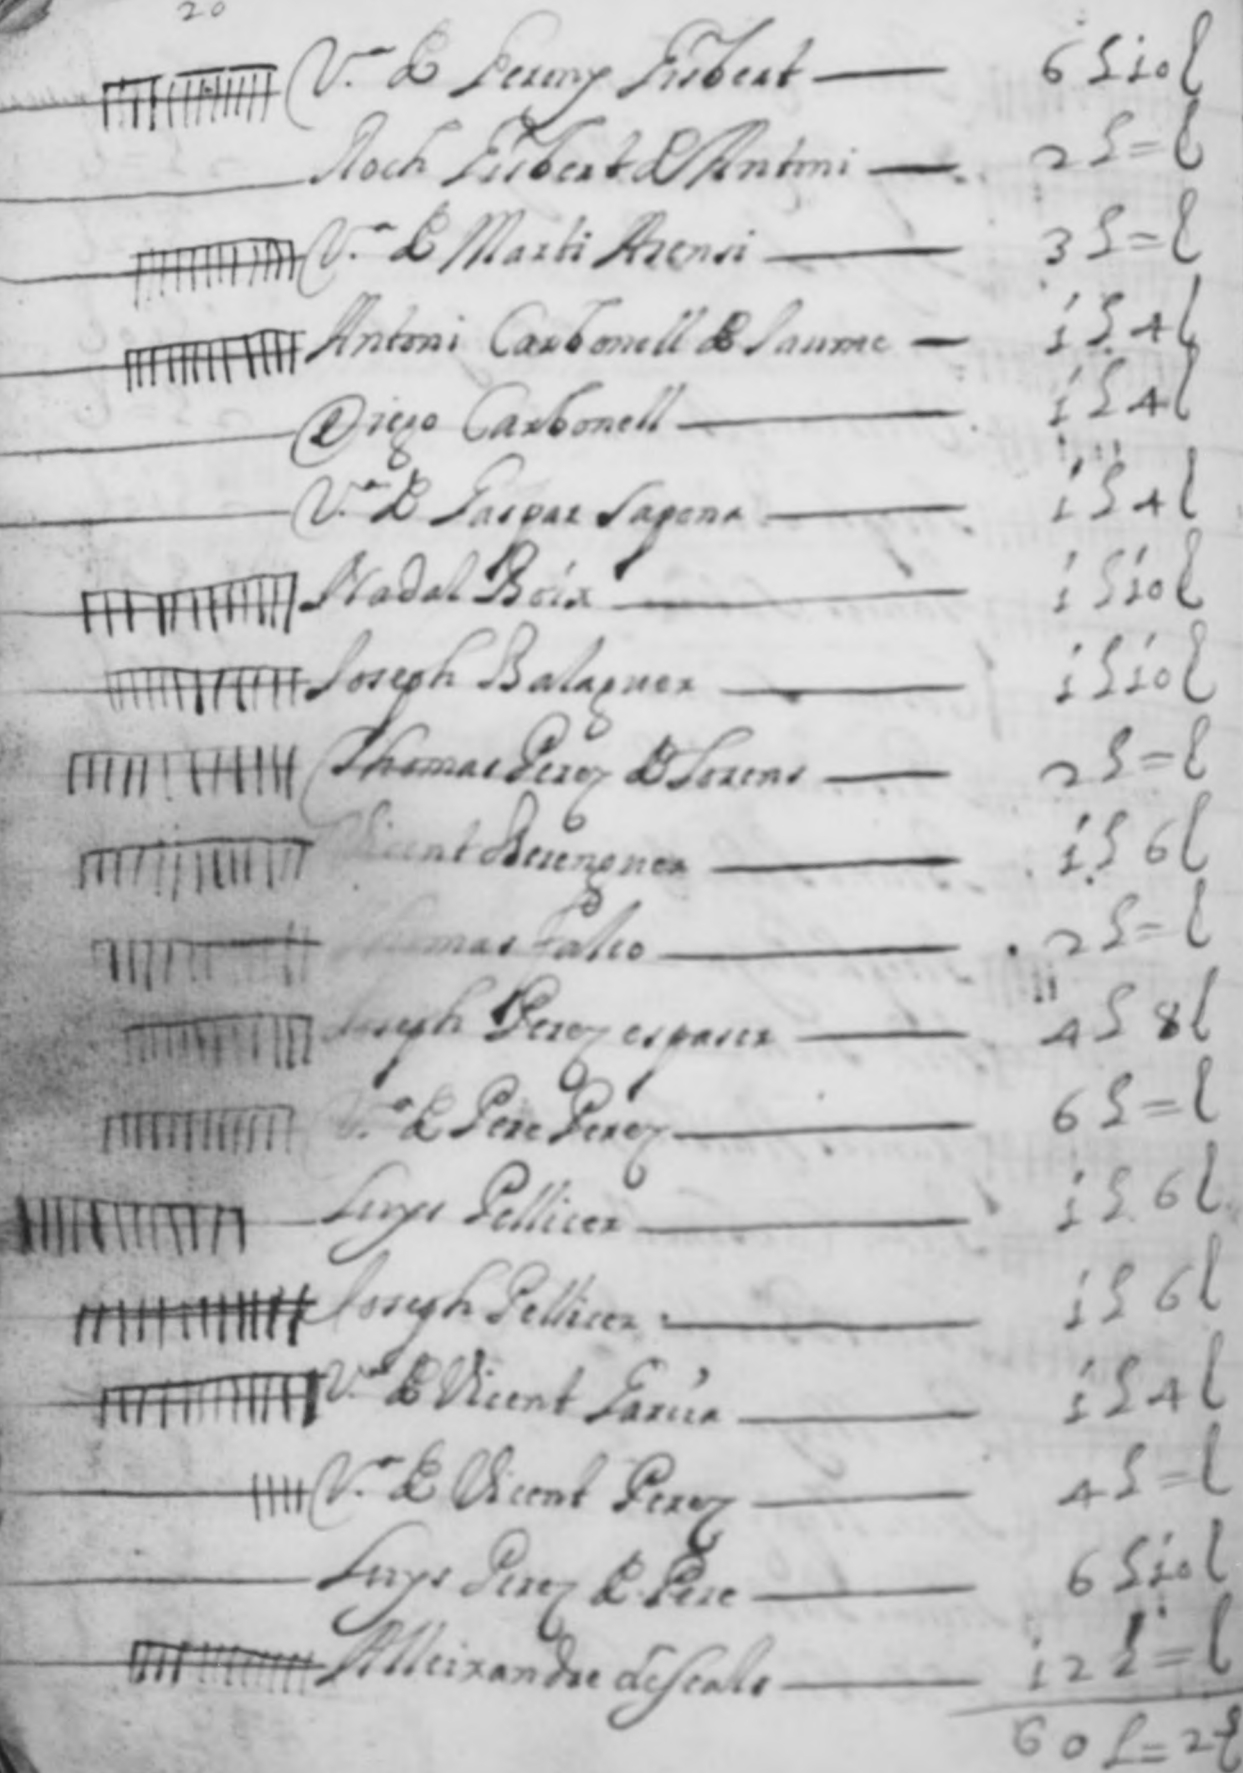 20
V.ª de Jerony Gisbert — 6 £ 10 l
Roch Gisbert de Antoni — 2 £ = l
V.ª de Marti Asensi — 3 £ = l
Antoni Carbonell de Jaume — 1 £ 4 l
Diego Carbonell — 1 £ 4 l
V.ª de Gaspar Sapena — 1 £ 4 l
Nadal Boix — 1 £ 10 l
Joseph Balaguer — 1 £ 10 l
Thomas Perez de Lorens — 2 £ = l
Vicent Berenguer — 1 £ 6 l
Thomas Falco — 2 £ = l
Joseph Perez espaser — 4 £ 8 l
V.ª de Pere Perez — 6 £ = l
Luys Pellicer — 1 £ 6 l
Joseph Pellicer — 1 £ 6 l
V.ª de Vicent Garcia — 1 £ 4 l
V.ª de Vicent Perez — 4 £ = l
Luys Perez de Pere — 6 £ 10 l
Alleixandre descals — 12 £ = l
60 £ = 2 l